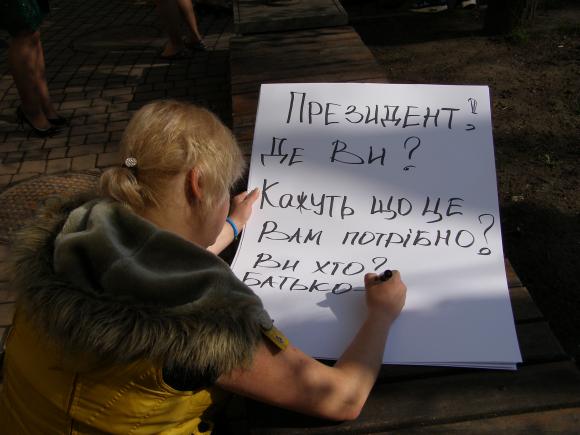 ПРЕЗИДЕНТ!
ДЕ ВИ?
КАЖУТЬ ЩО ЦЕ
ВАМ ПОТРІБНО?
ВИ ХТО?
БАТЬКО